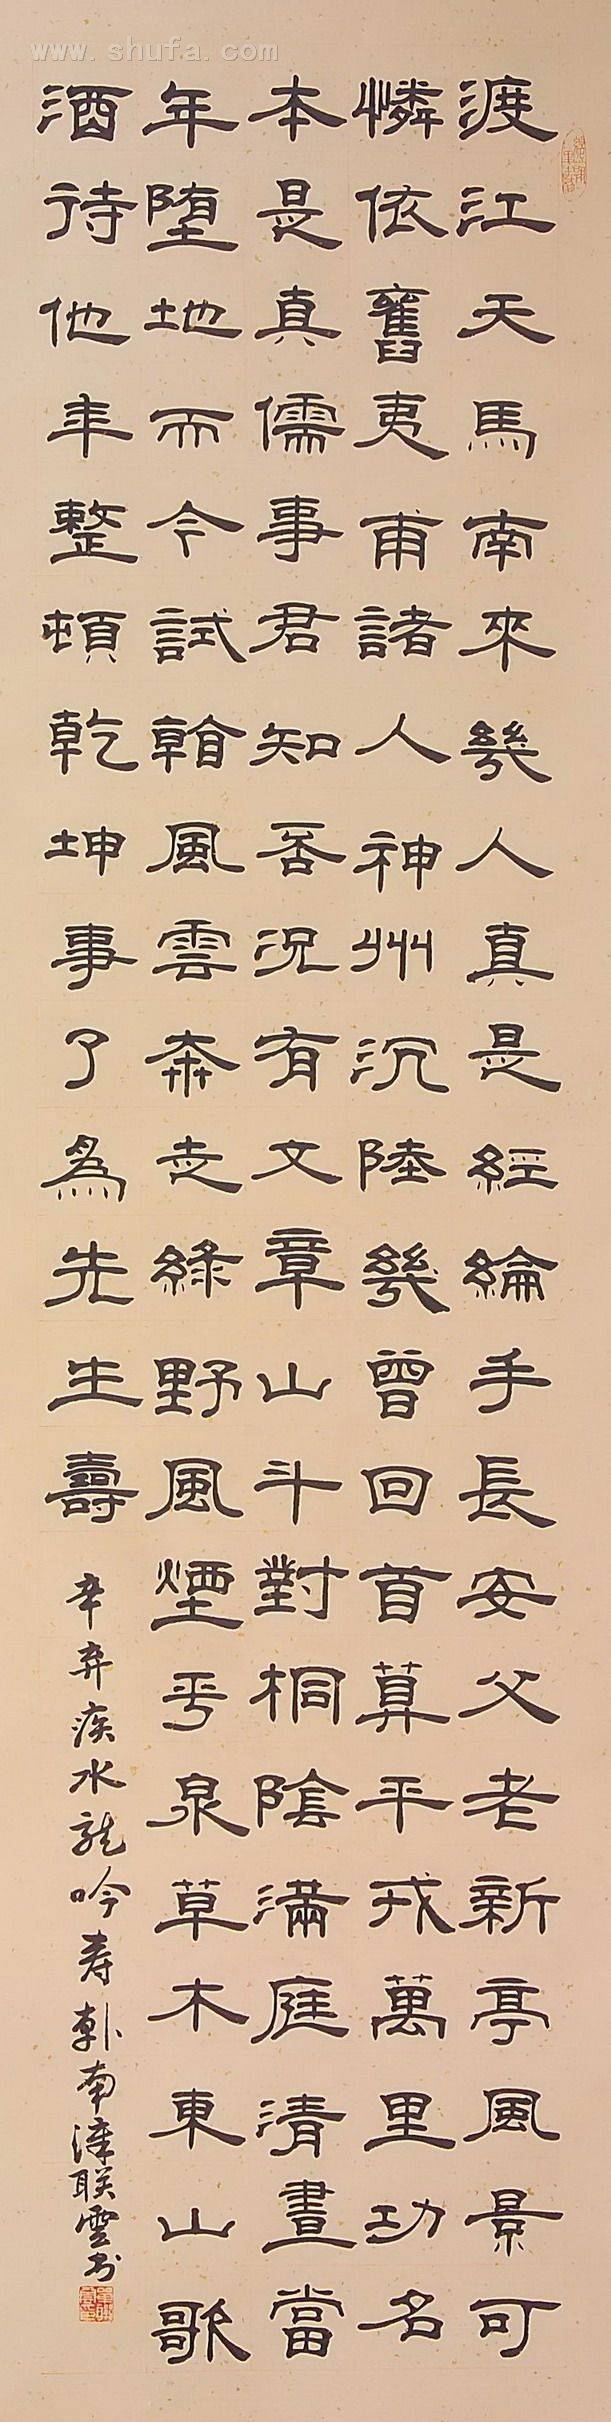 www.shufa.com
渡江天馬南來幾人真是經綸手長安父老新亭風景可
憐依舊夷甫諸人神州沉陸幾曾回首算平戎萬里功名
本是真儒事君知否況有文章山斗對桐陰滿庭清晝當
年堕地而今試看風雲奔走綠野風煙平泉草木東山歌
酒待他年整頓乾坤事了為先生壽
辛弃疾水龙吟寿韩南联雲书